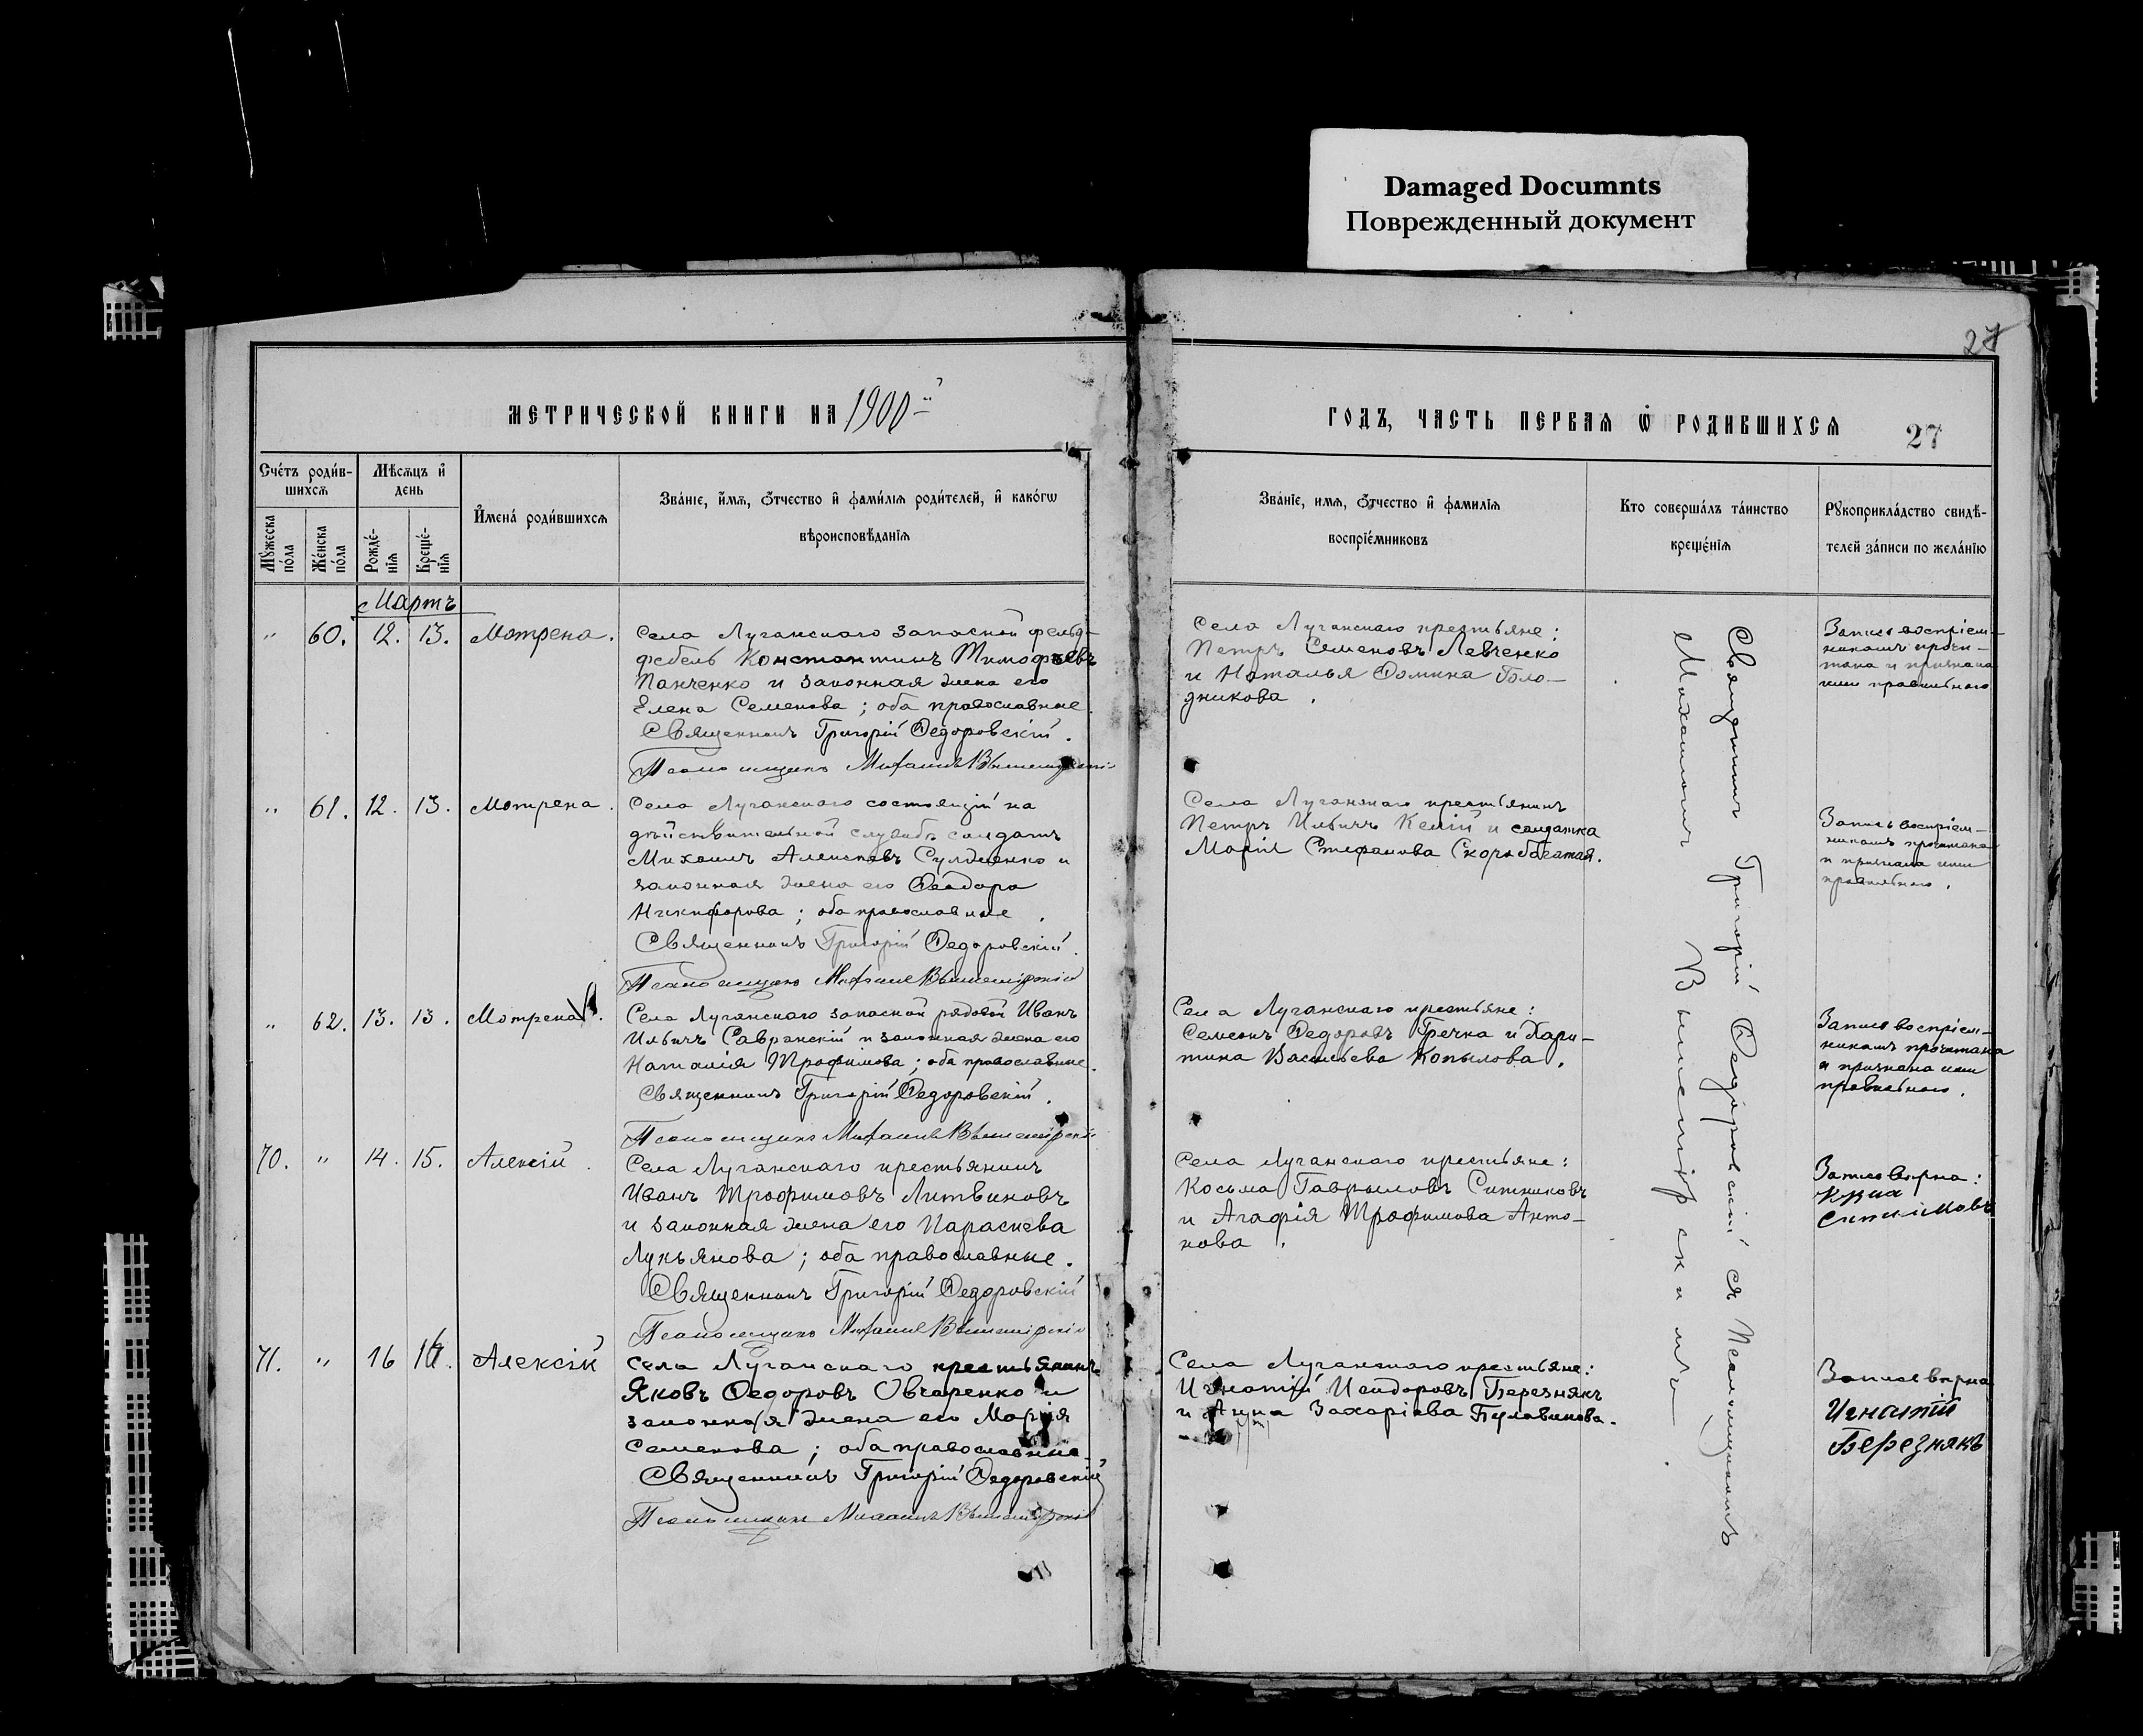 Damaged Documnts
Поврежденный документ
27
МЕТРИЧЕСКОЙ КНИГИ НА 1900й
ГОДЪ, ЧАСТЬ ПЕРВАЯ Ѡ РОДИВШИХСЯ
27
Счéтъ роди́в-
шихсѧ
Мѣсѧцъ и҆
день
Мꙋжеска
пóла
Жéнска
пóла
Рождé-
нїѧ
Крещé-
нїѧ
И҆менá роди́вшихсѧ
Звáнїе, и҆́мѧ, ѻ҆́тчество и҆ фами́лїѧ роди́телей, и҆ какóгѡ
вѣроисповѣ́данїѧ
Звáнїе, имѧ, ѻ҆́тчество и҆ фамилїѧ
воспрїéмниковъ
Кто совершáлъ тáинство
крещéнїѧ
Рꙋкоприклáдство свидѣ́-
телей зáписи по желáнїю
Мартъ
" 60. 12. 13. Мотрена.
Села Луганскаго запасной фельд-
фебель Константинъ Тимофѣевъ
Панченко и законная жена его
Елена Семенова; оба православные.
Священникъ Григорій Ѳедоровскій.
Псаломщикъ Михаилъ Вышемірскій
Села Луганскаго крестьяне:
Петръ Семеновъ Левченко
и Наталья Фомина Голо-
дникова.
Запись воспріем-
никамъ прочи-
тана и признана
ими правильною
" 61. 12. 13. Мотрена.
Села Луганскаго состоящій на
дѣйствительной службѣ солдатъ
Михаилъ Алексѣевъ Сулименко и
законная жена его Ѳеодора
Никифорова; оба православные.
Священникъ Григорій Ѳедоровскій.
Псаломщикъ Михаилъ Вышемірскій
Села Луганскаго крестьянинъ
Петръ Ильичъ Келій и солдатка
Марія Стефанова Скоробагатая.
Запись воспріем-
никамъ прочитана
и признана ими
правильною.
" 62. 13. 13. Мотрена.
Села Луганскаго запасной рядовой Иванъ
Ильичъ Савранскій и законная жена его
Наталія Трофимова; оба православные.
Священникъ Григорій Ѳедоровскій.
Псаломщикъ Михаилъ Вышемірскій
Села Луганскаго крестьяне:
Семенъ Ѳедоровъ Гречка и Хари-
тина Васильева Копылова.
Запись воспріем-
никамъ прочитана
и признана ими
правильною.
70. " 14. 15. Алексій.
Села Луганскаго крестьянинъ
Иванъ Трофимовъ Литвиновъ
и законная жена его Параскева
Лукьянова; оба православные.
Священникъ Григорій Ѳедоровскій
Псаломщикъ Михаилъ Вышемірскій
Села Луганскаго крестьяне:
Косьма Гавриловъ Ситниковъ
и Агафія Трофимова Анто-
нова.
Запись вѣрна:
71. " 16 16. Алексій
Села Луганскаго крестьянинъ
Яковъ Ѳедоровъ Овчаренко и
законная жена его Марія
Семенова; оба православные
Священникъ Григорій Ѳедоровскій
Псаломщикъ Михаилъ Вышемірскій
Села Луганскаго крестьяне:
Игнатій Исидоровъ Березнякъ
и Анна Захаріева Булавинова.
Запись вѣрна
Игнатій
Березнякъ
Священникъ Григорій Ѳедоровскій съ Псаломщикомъ
Михаиломъ Вышемірскимъ.